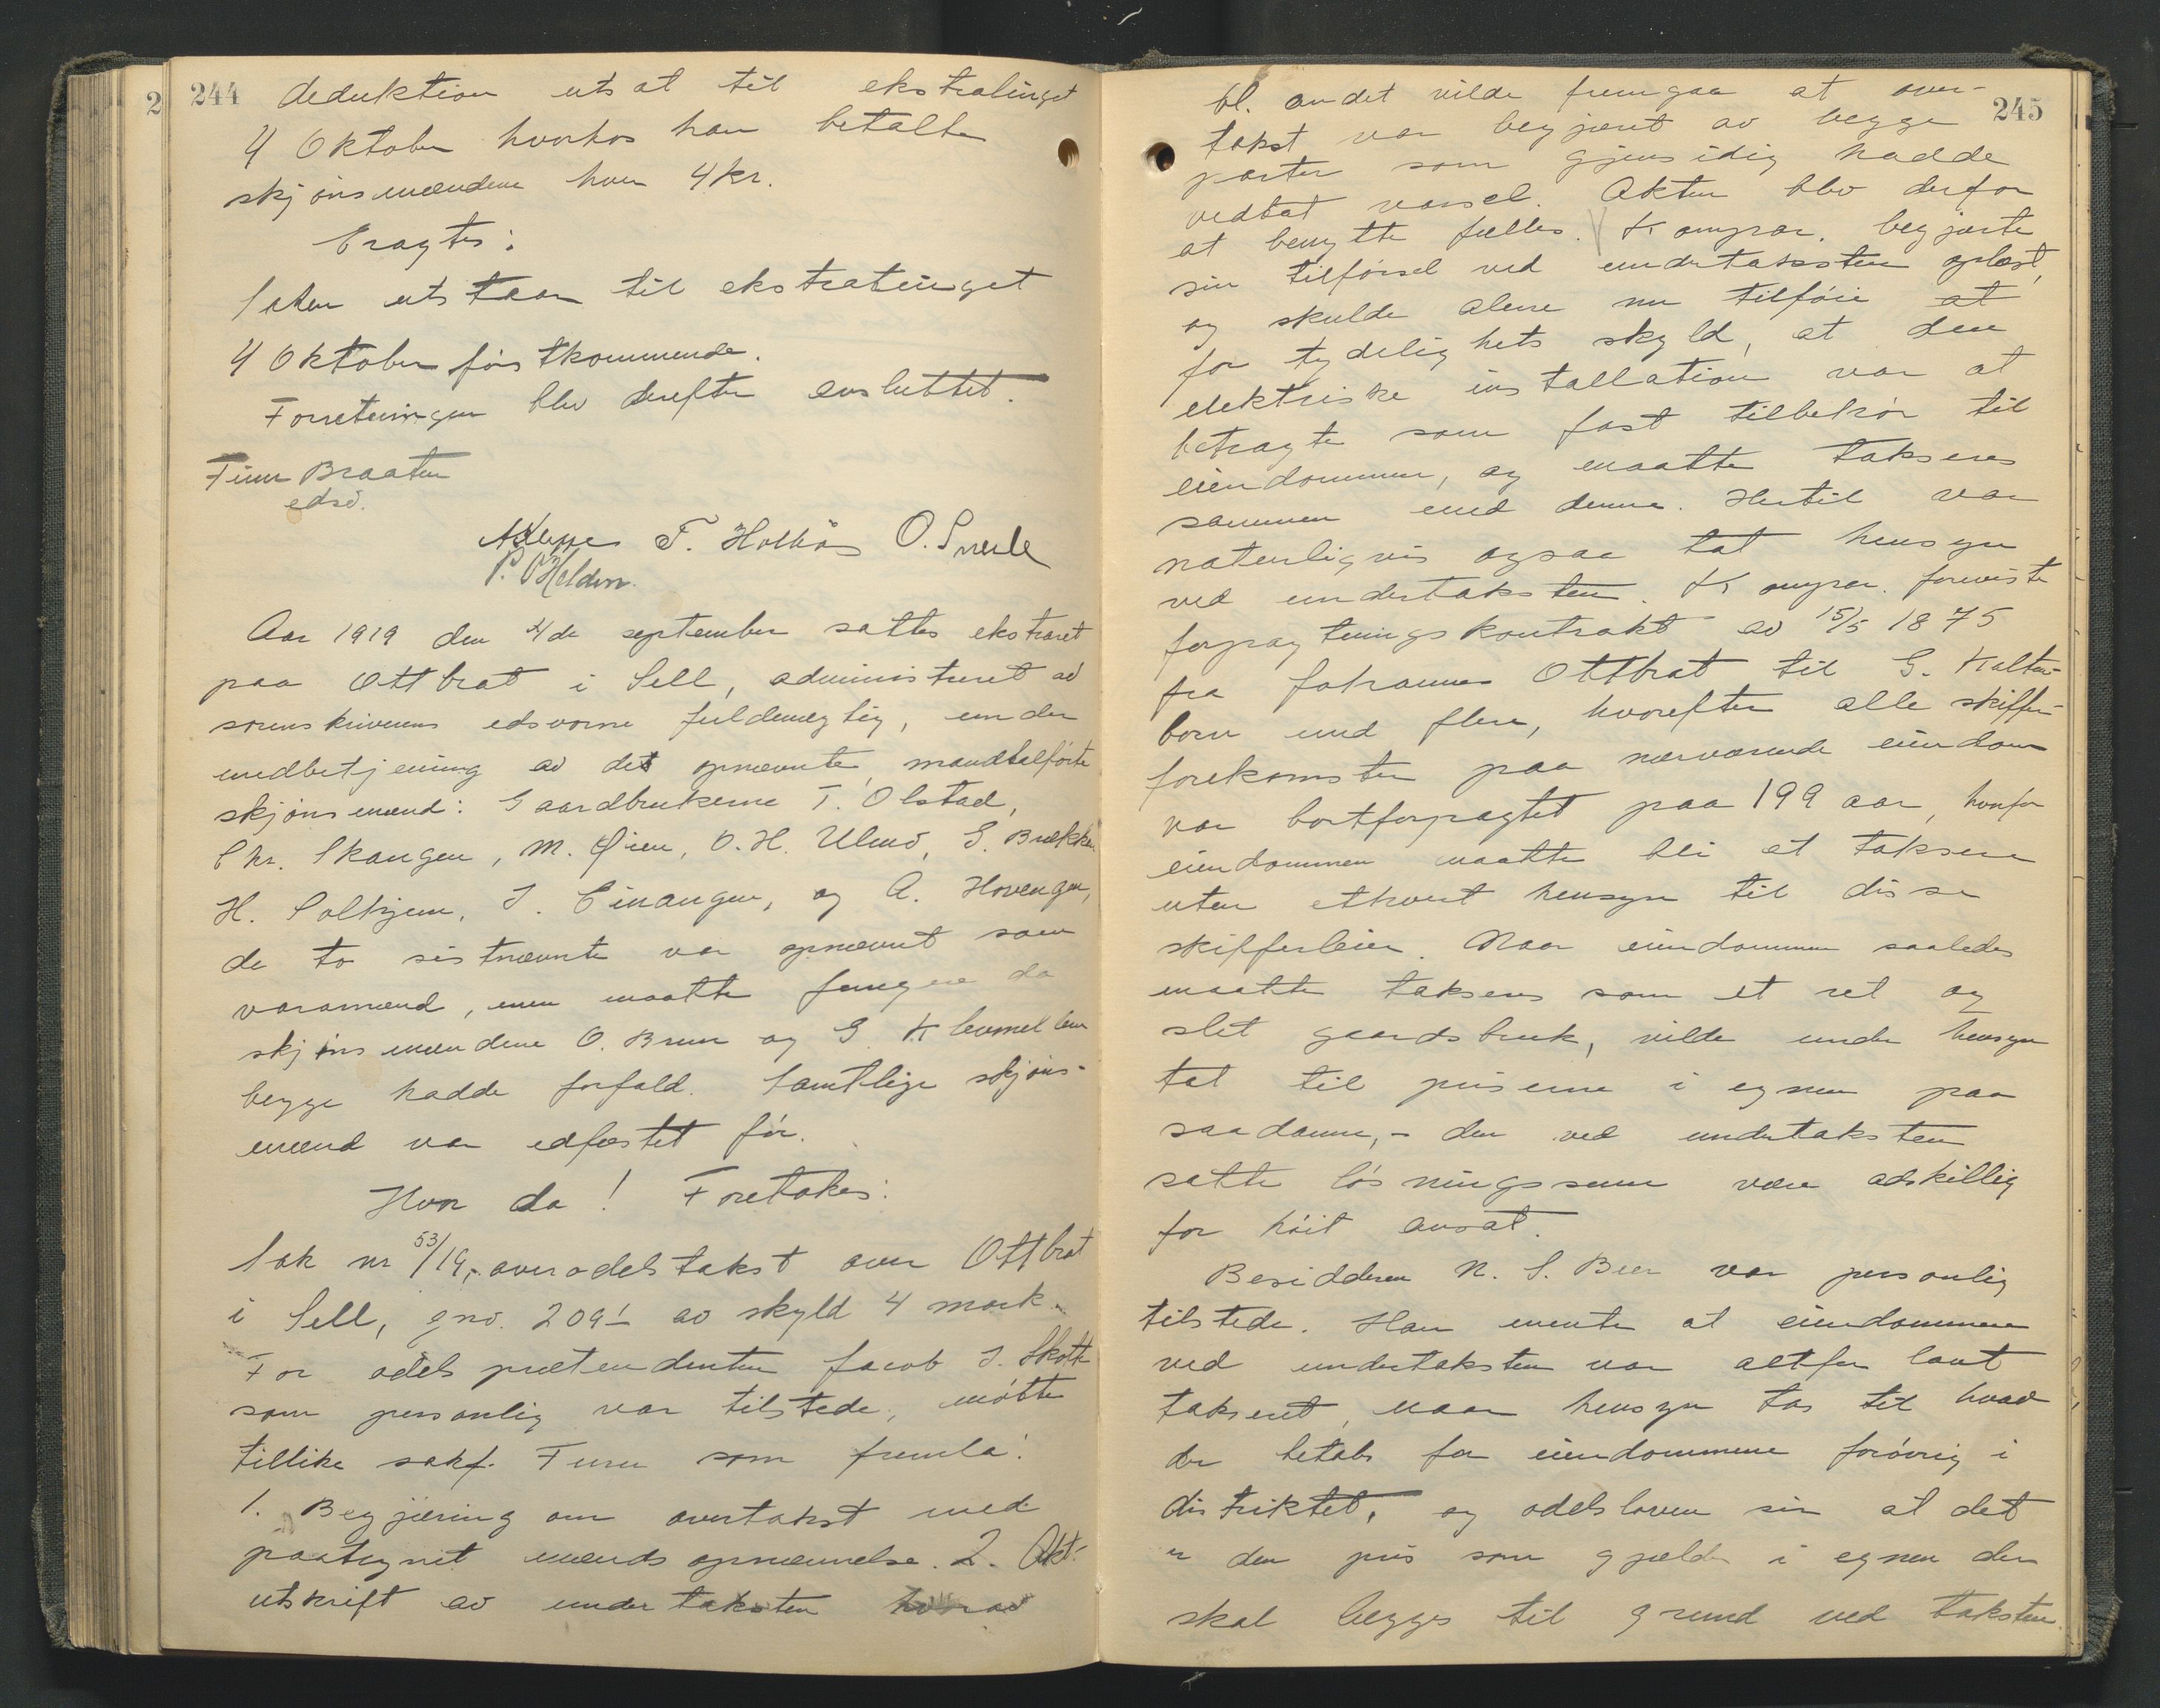 244
deduktion utsat til ekstratinget
4 Oktober hvorhos han betalte
skjønsmændene hver 4 kr.
Eragtes:
Saken utstaar til ekstratinget
4 Oktober førstkommende.
Forretningen blev derefter avsluttet.
Finn Braaten
edsv.
A Kleppe T. Holthås O. Snerle
P. O Holden.
Aar 1919 den 4de september sattes ekstraret
paa Ottbrat i Sell, administreret av
sorenskriverens edsvorne fuldmægtig, under
medbetjening av det opnævnte, mandtalførte
skjønsmænd: Gaardbrukerne T. Olstad,
Chr. Skangen, M. Øien, O. H. Ulmo, G. Brækken
H. Solhjem, J. Einangen, og A. Hovengen,
de to sistnævnte var opnævnt som
varamænd, men maatte fungere da
skjønsmændene O. Brun og G.
begge hadde forfald. Samtlige skjøns-
mænd var edfæstet før.
Hvor da! Foretokes:
Sak nr 53/19, overodelstakst over Ottbrat
i Sell, gno. 209/1 av skyld 4 mark.
For odelsprætendenten Jacob J. Skotte
som personlig var tilstede, møtte
tillike sakf. Furu som fremla:
1. Begjæring om overtakst med
paategnet mændsopnævnelse. 2. Akt-
utskrift av undertaksten hvorav
245
bl. andet vilde fremgaa at over-
takst var begjæret av begge
parter som gjensidig hadde
vedtat varsel. Akten blev derfor
at benytte fælles. Kompar. begjærte
sin tilførsel ved undertaksten oplæst,
og skulde alene nu tilføie at
for tydelighets skyld, at den
elektriske installation var at
betragte som fast tilbehør til
eiendommen, og maatte takseres
sammen med denne. Hertil var
naturligvis ogsaa tat hensyn
ved undertaksten. Kompar. foreviste
forpagtningskontrakt av 15/5 1875
fra Johannes Ottbrat til G. Kolten-
born med flere, hvorefter alle skiffer-
forekomster paa nærværende eiendom
var bortforpagtet paa 199 aar, hvorfor
eiendommen maatte bli at taksere
uten ethvert hensyn til disse
skifferleier. Naar eiendommen saaledes
maatte takseres som et ret og
slet gaardsbruk, vilde under hensyn
tat til priserne i egnen paa
saadanne, - den ved undertaksten
satte løsningssum være adskillig
for høit ansat.
Besidderen N. S. Beer var personlig
tilstede. Han mente at eiendommen
ved undertaksten var altfor lavt
taksert, naar hensyn tas til hvad
der betales for eiendommene forøvrig i
distriktet, og odelsloven sier at det
er den pris som gjælder i egnen der
skal lægges til grund ved taksten.